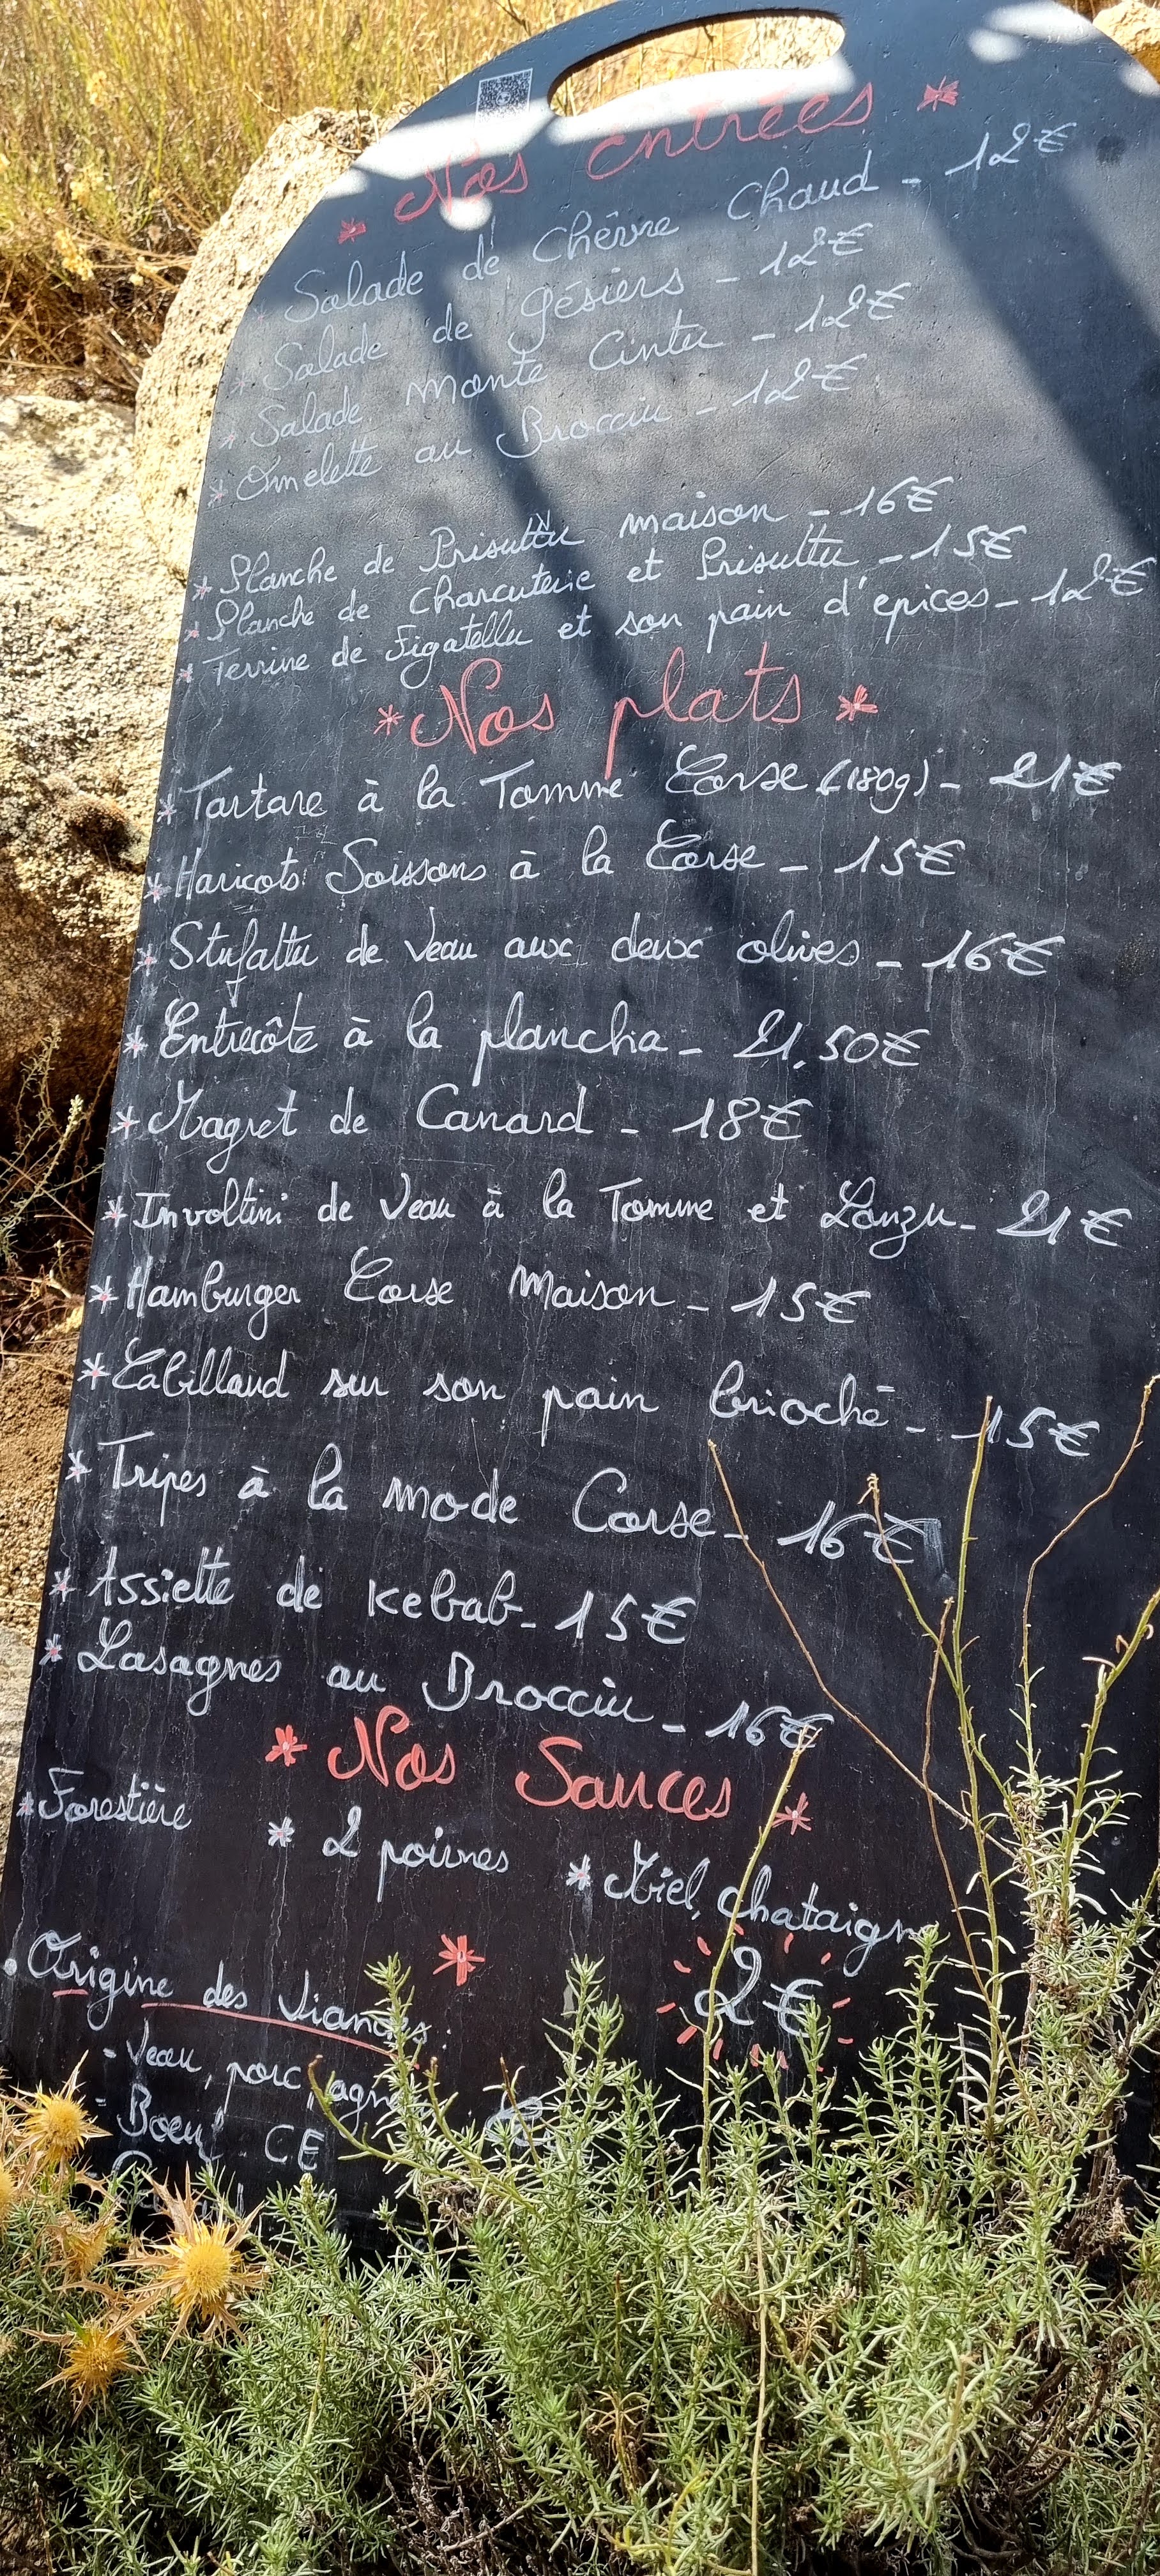 * Nos entrées *
* Salade de Chêvre Chaud - 12€
* Salade de gésiers - 12€
* Salade Monte Cintu - 12€
* Omelette au Brocciu - 12€
* Planche de Prisuttu maison - 16€
* Planche de Charcuterie et Prisuttu - 15€
* Terrine de Figatellu et son pain d'epices - 12€
* Nos plats *
* Tartare à la Tomme Corse (180g) - 21€
* Haricots Soissons à la Corse - 15€
* Stufattu de Veau aux deux olives - 16€
* Entrecôte à la plancha - 21,50€
* Magret de Canard - 18€
* Involtini de Veau à la Tomme et Lonzu - 21€
* Hamburger Corse Maison - 15€
* Cabillaud sur son pain brioché - 15€
* Tripes à la mode Corse - 16€
* Assiette de kebab - 15€
* Lasagnes au Brocciu - 16€
* Nos Sauces *
* Forestière * 2 poivres * Miel, chataigne
* 2€
Origine des Viandes
- Veau, porc, agneau
- Boeuf CE